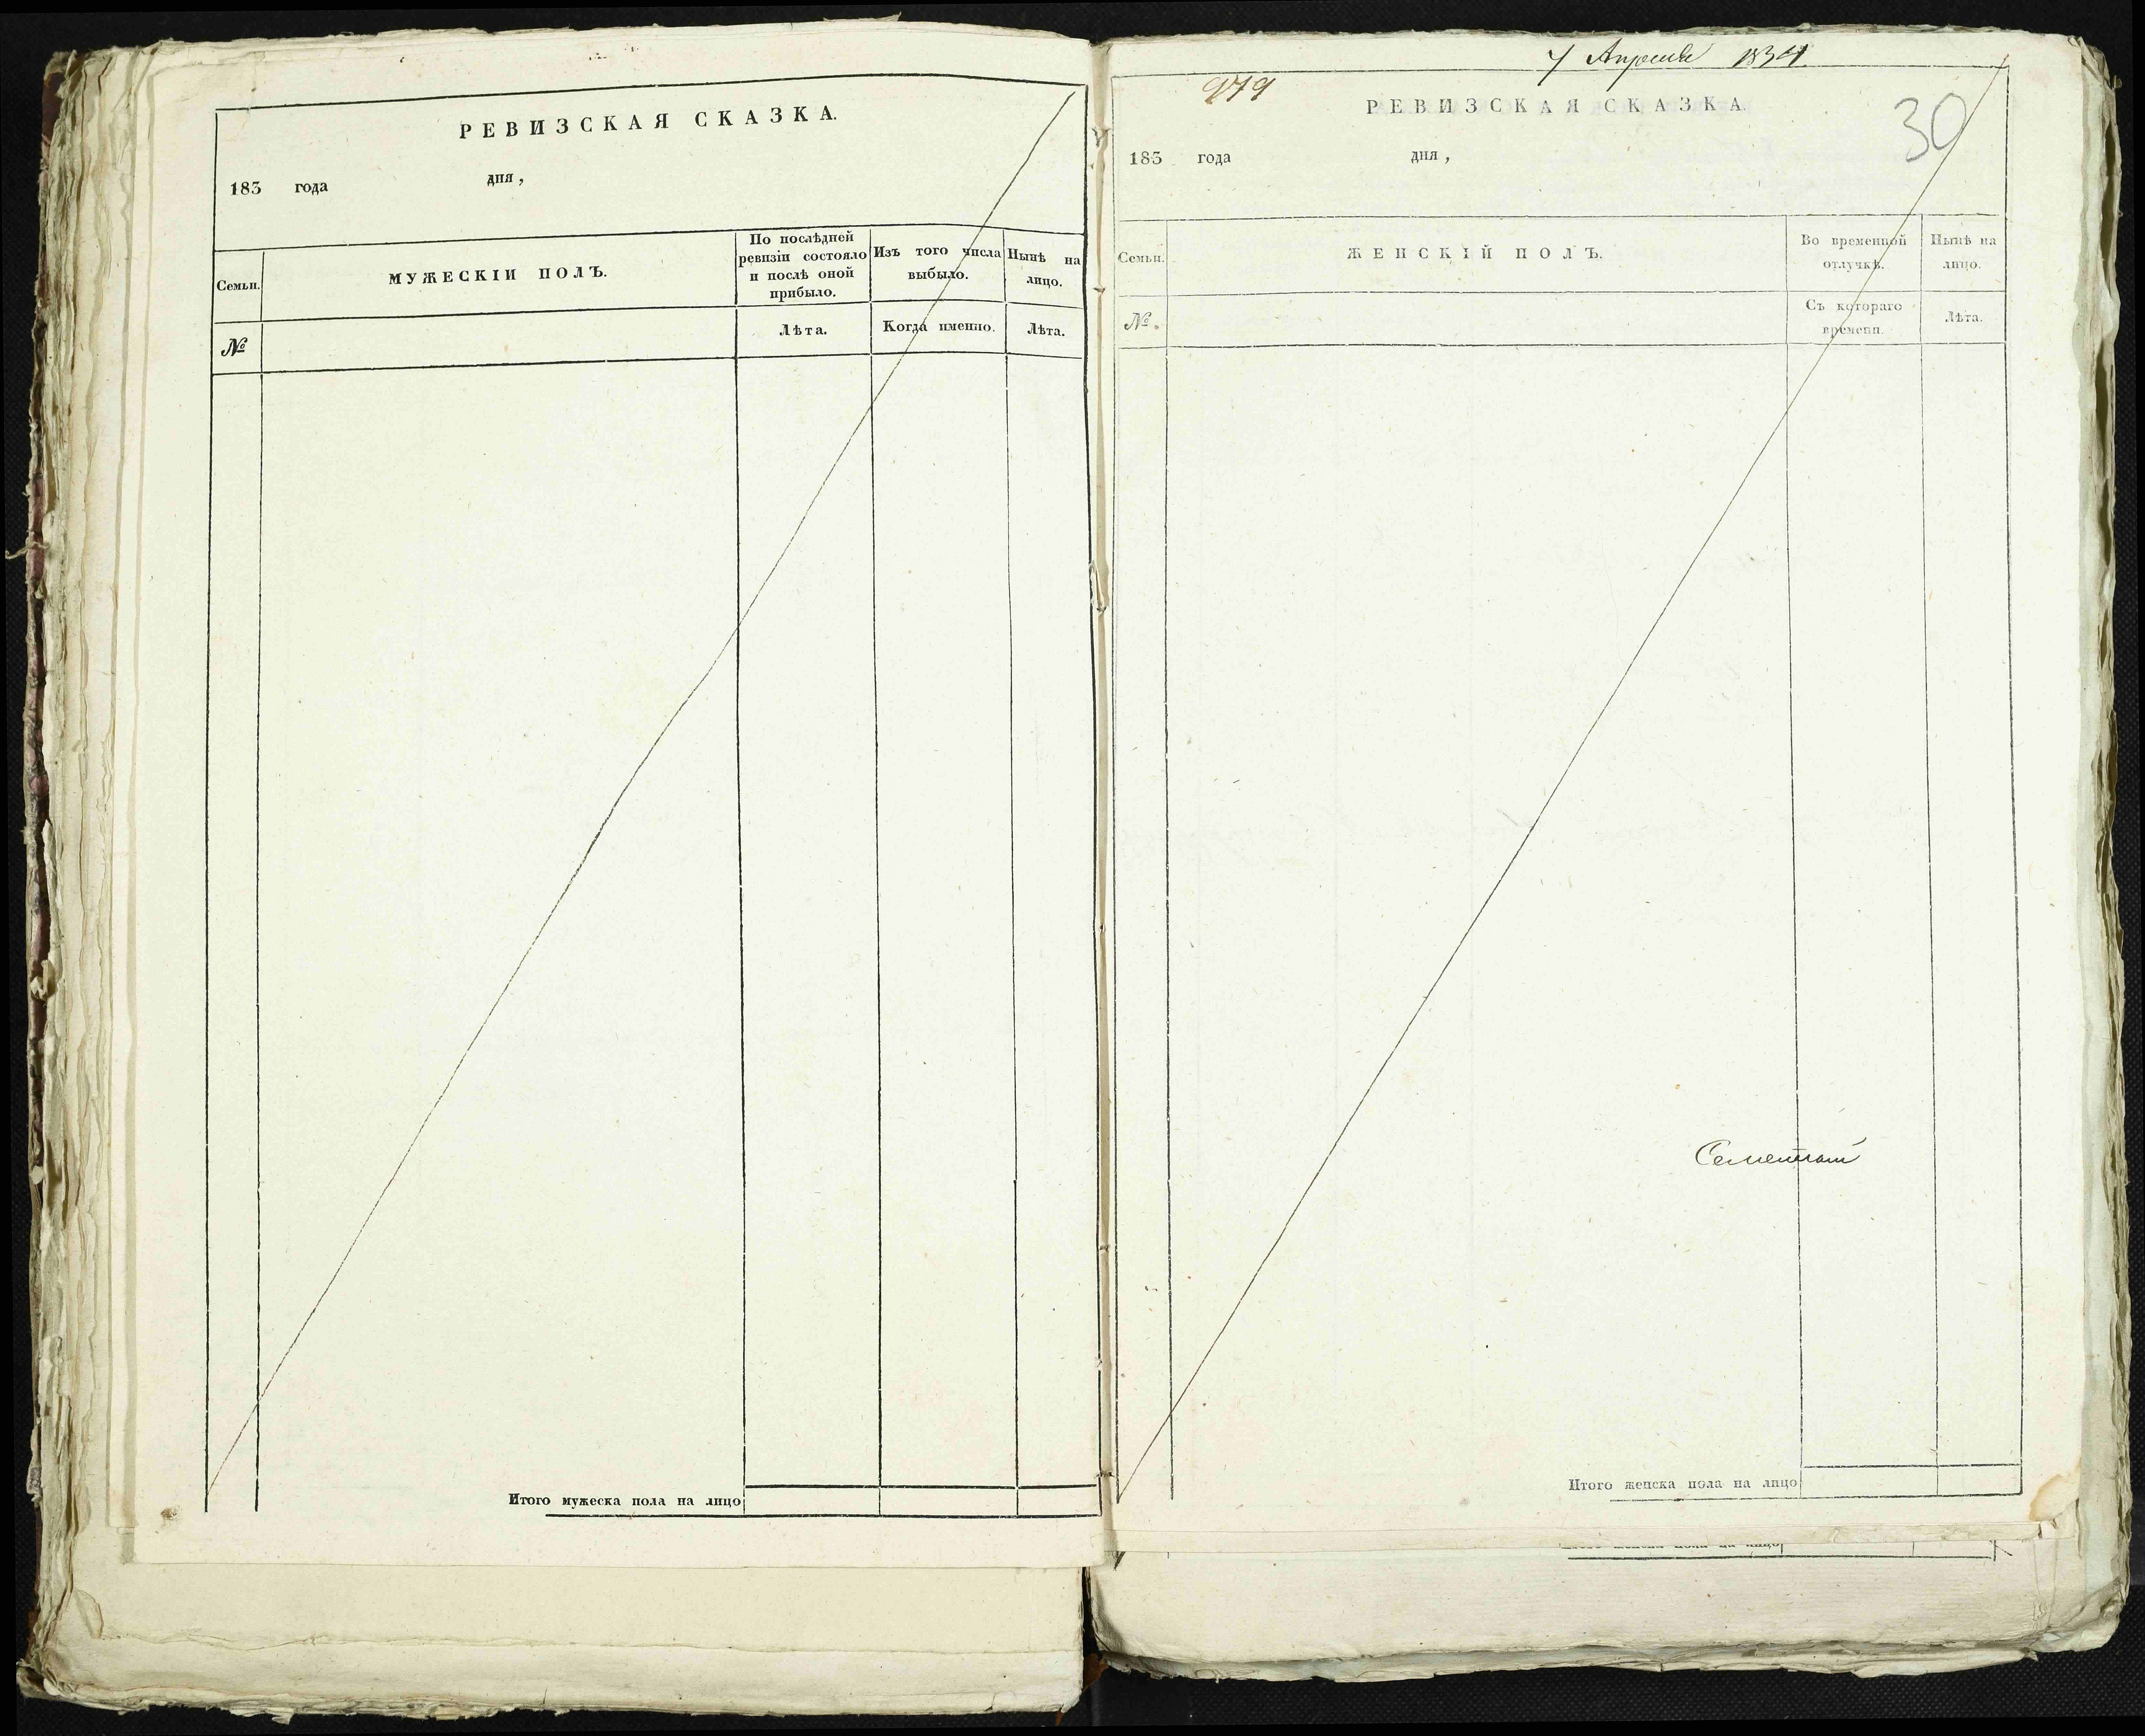 РЕВИЗСКАЯ СКАЗКА.
183 года дня,
Семьи.
МУЖЕСКІЙ ПОЛЪ.
По послѣдней
ревизіи состояло
и послѣ оной
прибыло.
Изъ того числа
выбыло.
Нынѣ на
лицо.
№
Лѣта.
Когда именно.
Лѣта.
Итого мужеска пола на лицо
7 Апреля 1834
979
РЕВИЗСКАЯ СКАЗКА.
30
183 года дня,
Семьи.
ЖЕНСКІЙ ПОЛЪ.
Во временной
отлучкѣ.
Нынѣ на
лицо.
№.
Съ котораго
времени.
Лѣта.
Итого женска пола на лицо